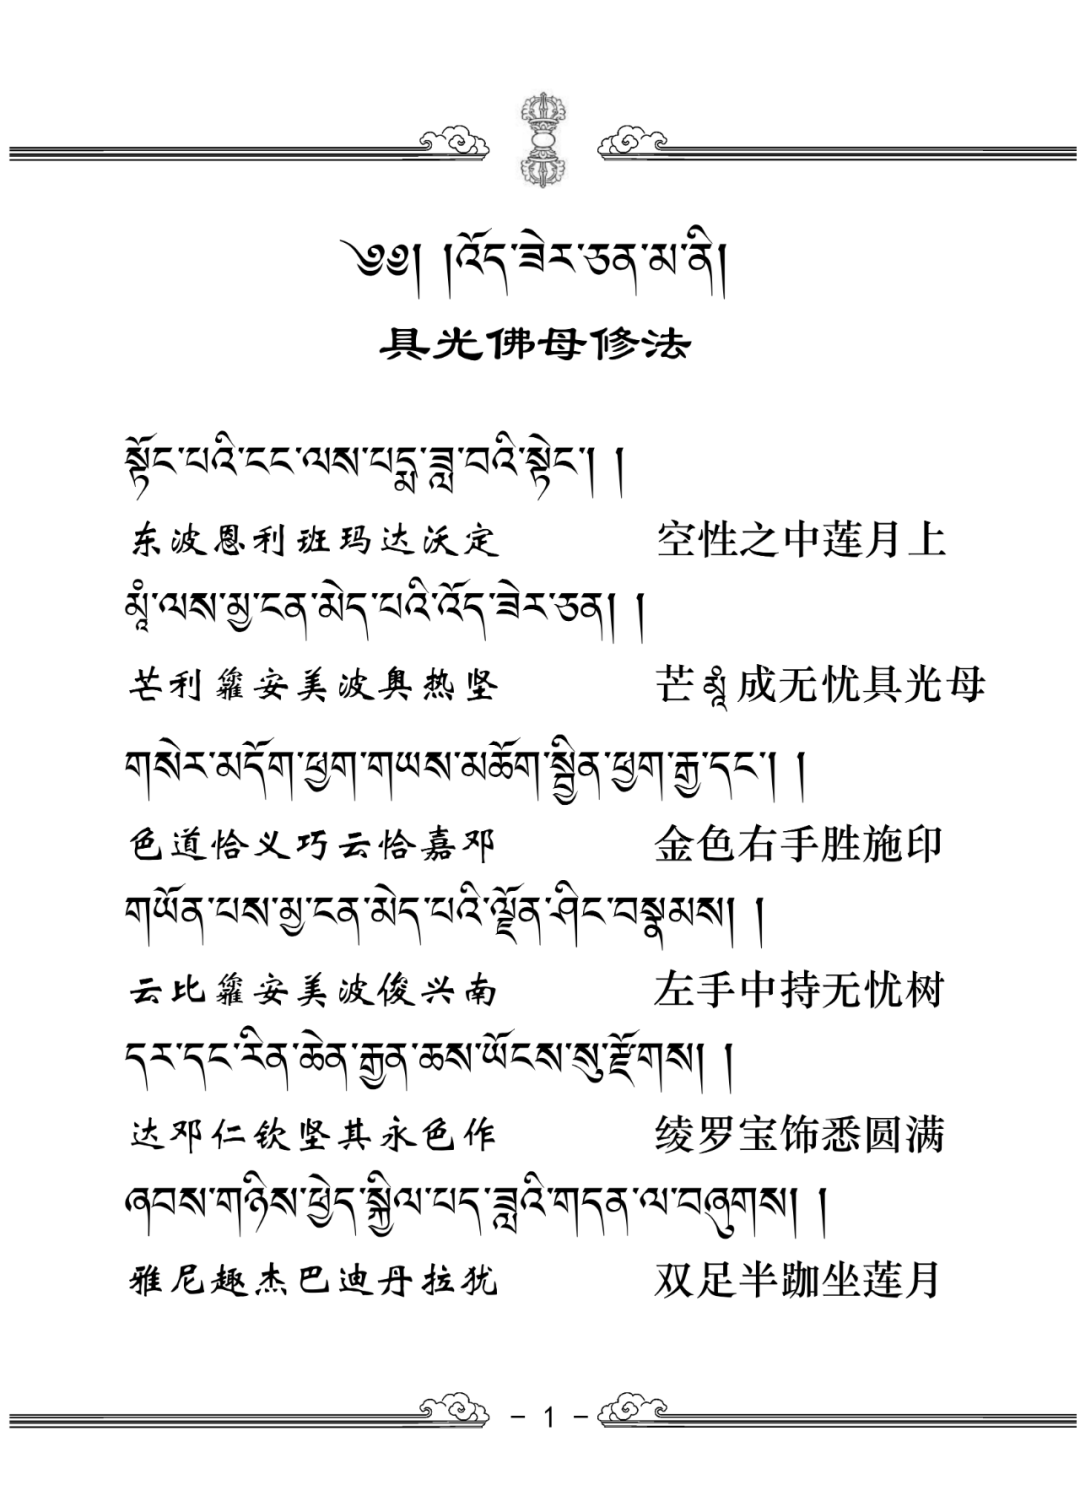 ༄༅། །འོད་ཟེར་ཅན་མ་ནི།
具光佛母修法
སྟོང་པའི་ངང་ལས་པདྨ་ཟླ་བའི་སྟེང་། །
东波恩利班玛达沃定 空性之中莲月上
མཱུྃ་ལས་མྱ་ངན་མེད་པའི་འོད་ཟེར་ཅན། །
芒利籮安美波奥热坚 芒མཱུྃ成无忧具光母
གསེར་མདོག་ཕྱག་གཡས་མཆོག་སྦྱིན་ཕྱག་རྒྱ་དང་། །
色道恰义巧云恰嘉邓 金色右手胜施印
གཡོན་པས་མྱ་ངན་མེད་པའི་ལྗོན་ཤིང་བསྣམས། །
云比籮安美波俊兴南 左手中持无忧树
དར་དང་རིན་ཆེན་རྒྱན་ཆས་ཡོངས་སུ་རྫོགས། །
达邓仁钦坚其永色作 绫罗宝饰悉圆满
ཞབས་གཉིས་ཕྱེད་སྐྱིལ་པད་ཟླའི་གདན་ལ་བཞུགས། །
雅尼趣杰巴迪丹拉犹 双足半跏坐莲月
- 1 -